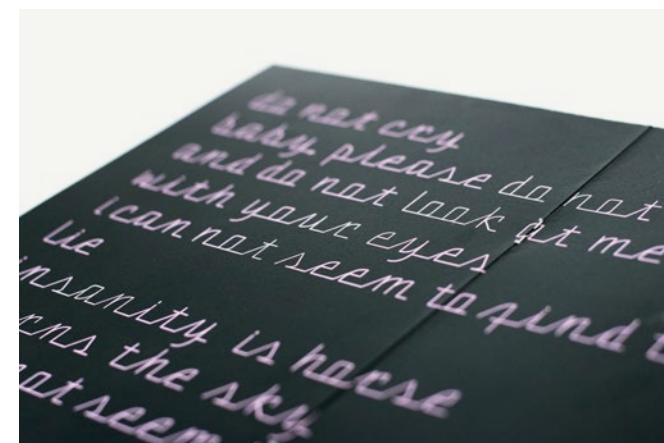 do not cry
baby, please do not
and do not look at me
with your eyes
i can not seem to find
lie
insanity is horse
the sky
not seem